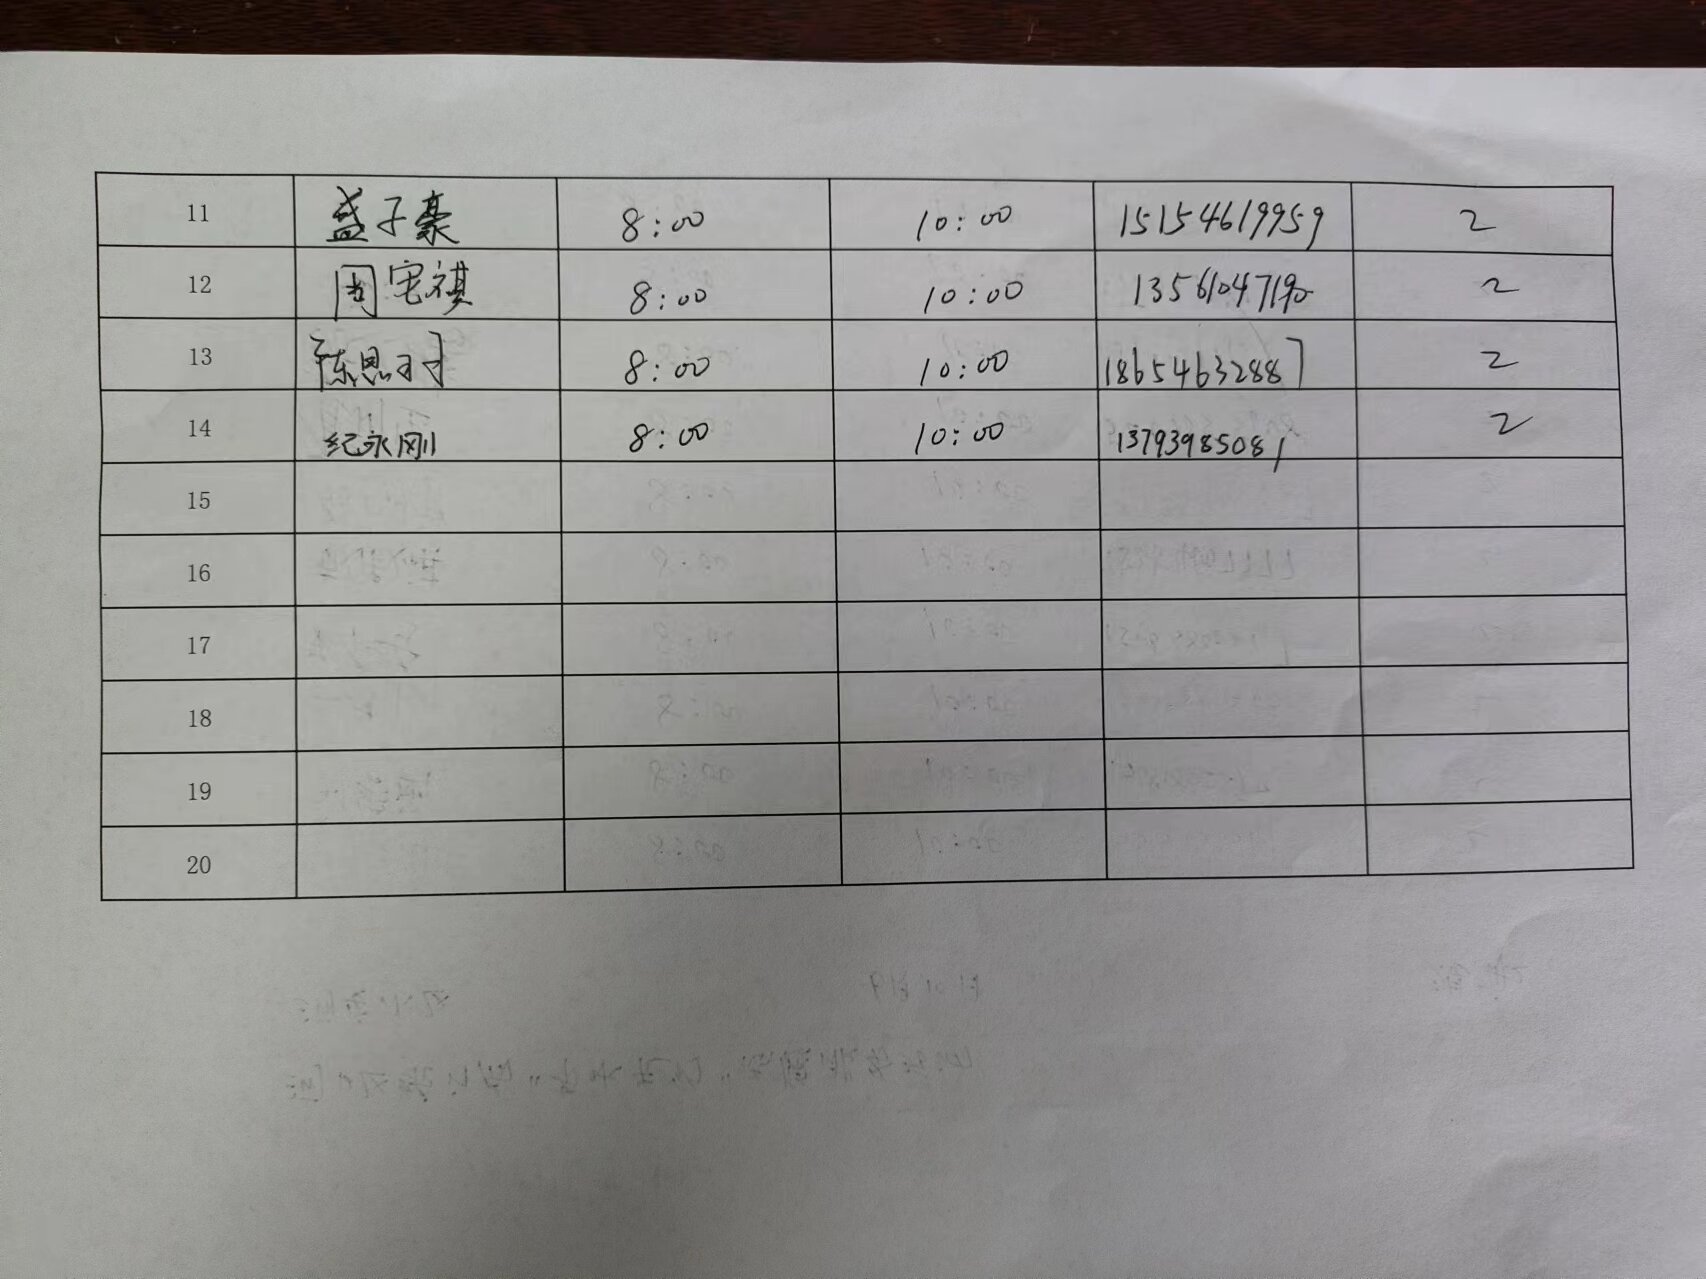 11 盖子豪 8:00 10:00 15154619959 2
12 周宝祺 8:00 10:00 13561047190 2
13 陈思 8:00 10:00 18654632887 2
14 纪永刚 8:00 10:00 13793985081 2
15
16
17
18
19
20